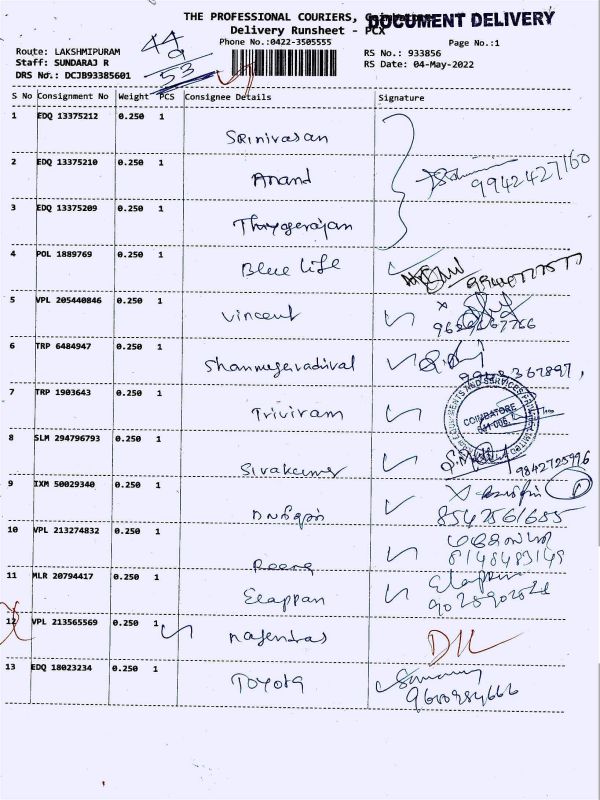 THE PROFESSIONAL COURIERS, Coimbatore
DOCUMENT DELIVERY
Delivery Runsheet - PCX
Phone No.:0422-3505555
Page No.:1
Route: LAKSHMIPURAM
Staff: SUNDARAJ R
DRS No.: DCJB93385601
44
9
53
RS No.: 933856
RS Date: 04-May-2022
S No Consignment No Weight PCS Consignee Details Signature
1 EDQ 13375212 0.250 1 Srinivasan
2 EDQ 13375210 0.250 1 Anand 9942427160
3 EDQ 13375209 0.250 1 Thiyagerajan
4 POL 1889769 0.250 1 Blue Life
5 VPL 205440846 0.250 1 Vincent
6 TRP 6484947 0.250 1 Shanmugavadival
7 TRP 1903643 0.250 1 Triviram
COIMBATORE
8 SLM 294796793 0.250 1 Sivakumar 9842725996
9 IXM 50029340 0.250 1 8542561685
10 VPL 213274832 0.250 1 8148483149
11 MLR 20794417 0.250 1 Elappan Elappan
12 VPL 213565569 0.250 1 Rajendras DL
13 EDQ 18023234 0.250 1 TOYOTA